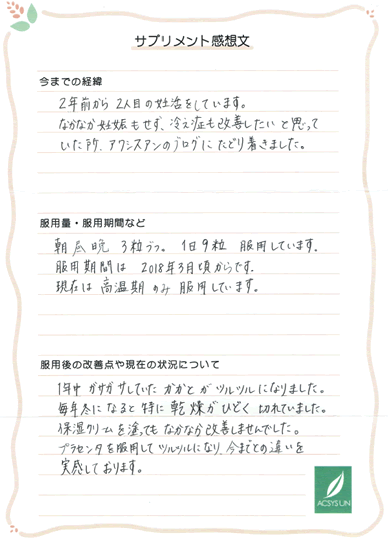 サプリメント感想文
今までの経緯
2年前から 2人目の妊活をしています。
なかなか妊娠もせず、冷え症も改善したいと思って
いた所、アクシスアンのブログにたどり着きました。
服用量・服用期間など
朝昼晩 3粒づつ。 1日9粒 服用しています。
服用期間は 2018年3月頃からです。
現在は 高温期のみ 服用しています。
服用後の改善点や現在の状況について
1年中 ガサガサしていた かかとが ツルツルになりました。
毎年冬になると 特に 乾燥がひどく 切れていました。
保湿クリームを塗ってもなかなか改善しませんでした。
プラセンタを服用して ツルツルになり、今までとの違いを
実感しております。
ACSYSUN